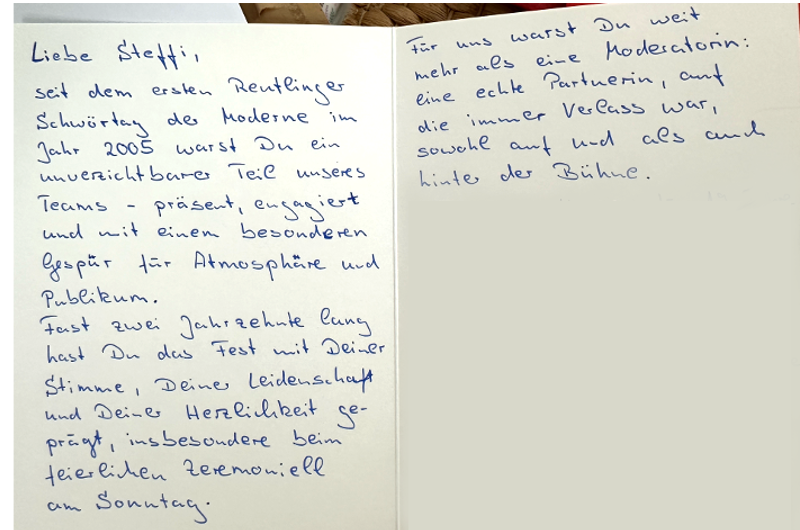 Liebe Steffi,
seit dem ersten Reutlinger
Schwörtag der Moderne im
Jahr 2005 warst Du ein
unverzichtbarer Teil unseres
Teams - präsent, engagiert
und mit einem besonderen
Gespür für Atmosphäre und
Publikum.
Fast zwei Jahrzehnte lang
hast Du das Fest mit Deiner
Stimme, Deiner Leidenschaft
und Deiner Herzlichkeit ge-
prägt, insbesondere beim
feierlichen Zeremoniell
am Sonntag.
Für uns warst Du weit
mehr als eine Moderatorin:
eine echte Partnerin, auf
die immer Verlass war,
sowohl auf und als auch
hinter der Bühne.